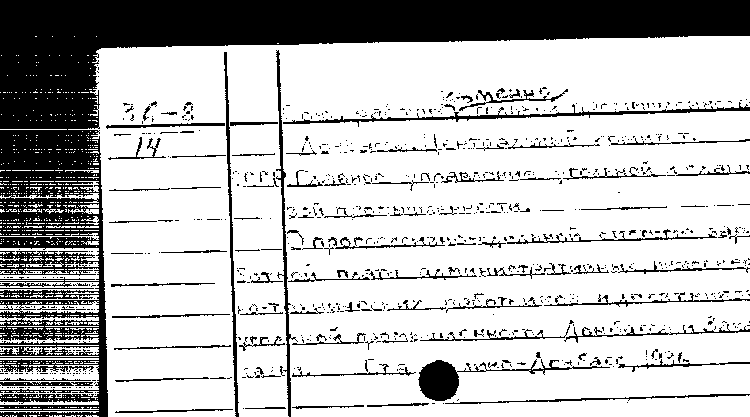 каменно
36-8 Союз рабочих угольной промышленности
14 Донбасса. Центральный комитет.
СССР. Главное управление угольной и сланце-
вой промышленности.
О прогрессивно-сдельной системе зара-
ботной платы административных, инженер
но-технических работников и десятников
угольной промышленности Донбасса и Кавка
Сталино-Донбасс, 1936